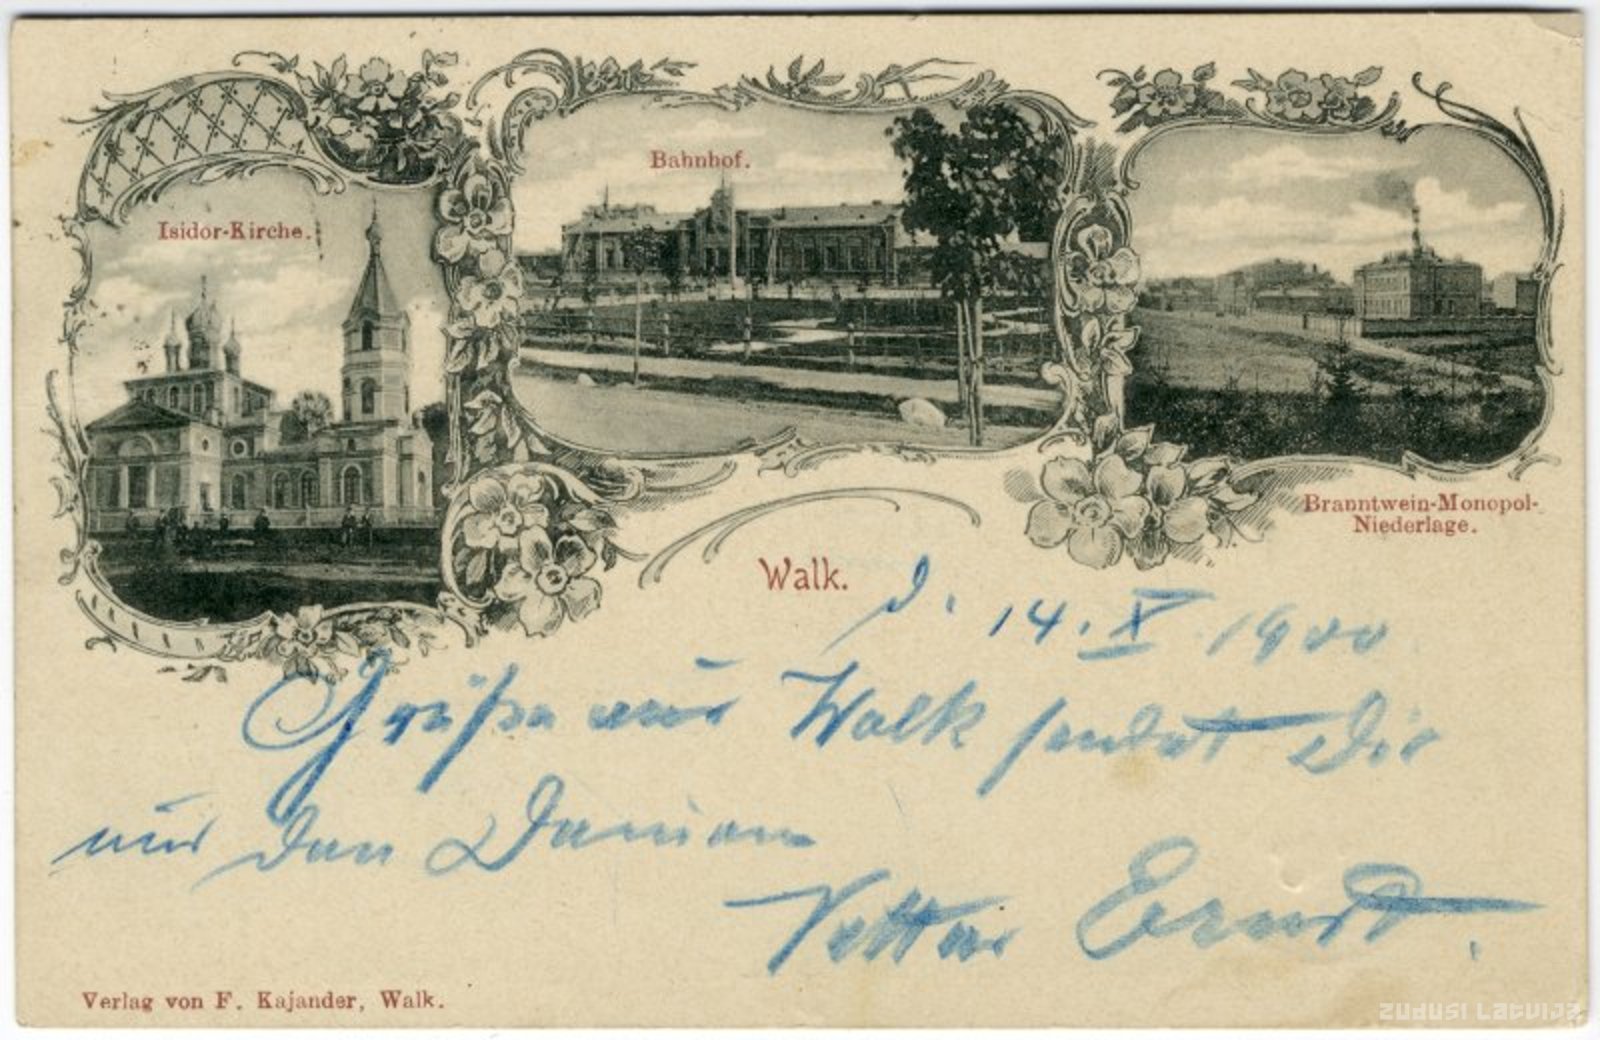 Isidor-Kirche.
Bahnhof.
Branntwein-Monopol-
Niederlage.
Walk.
d. 14. X. 1900
Grüße aus Walk sendet Dir
und den Deinen
Vetter Ernst.
Verlag von F. Kajander, Walk.
ZUDUSI LATVIJA